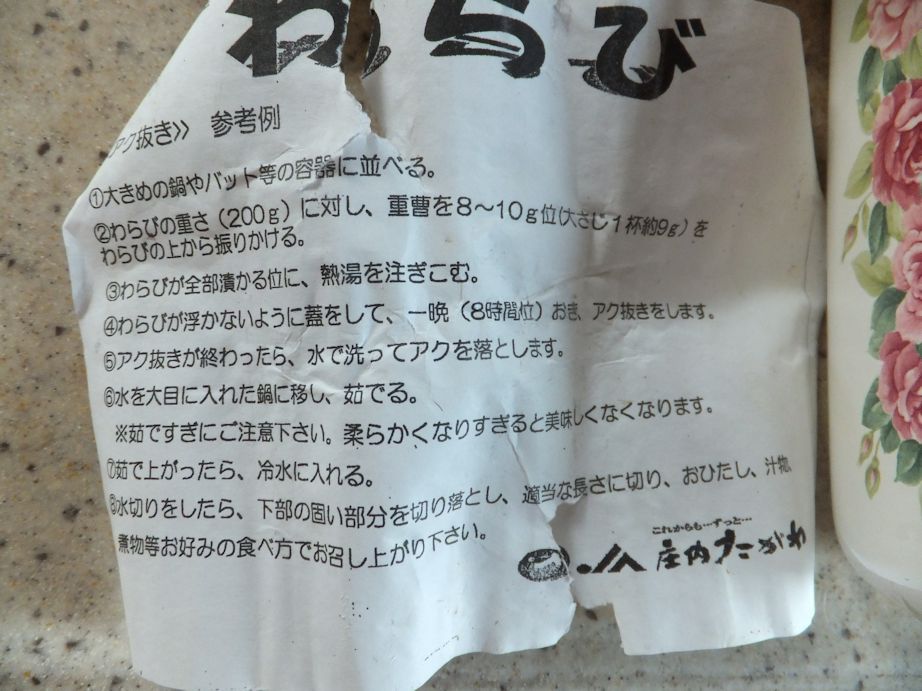 わらび
アク抜き》　参考例
①大きめの鍋やバット等の容器に並べる。
②わらびの重さ（200g）に対し、重曹を8～10g位(大さじ1杯約9g）を
わらびの上から振りかける。
③わらびが全部漬かる位に、熱湯を注ぎこむ。
④わらびが浮かないように蓋をして、一晩（8時間位）おき、アク抜きをします。
⑤アク抜きが終わったら、水で洗ってアクを落とします。
⑥水を大目に入れた鍋に移し、茹でる。
※茹ですぎにご注意下さい。柔らかくなりすぎると美味しくなくなります。
⑦茹で上がったら、冷水に入れる。
⑧水切りをしたら、下部の固い部分を切り落とし、適当な長さに切り、おひたし、汁物、
煮物等お好みの食べ方でお召し上がり下さい。
これからも…ずっと…
JA 庄内たがわ